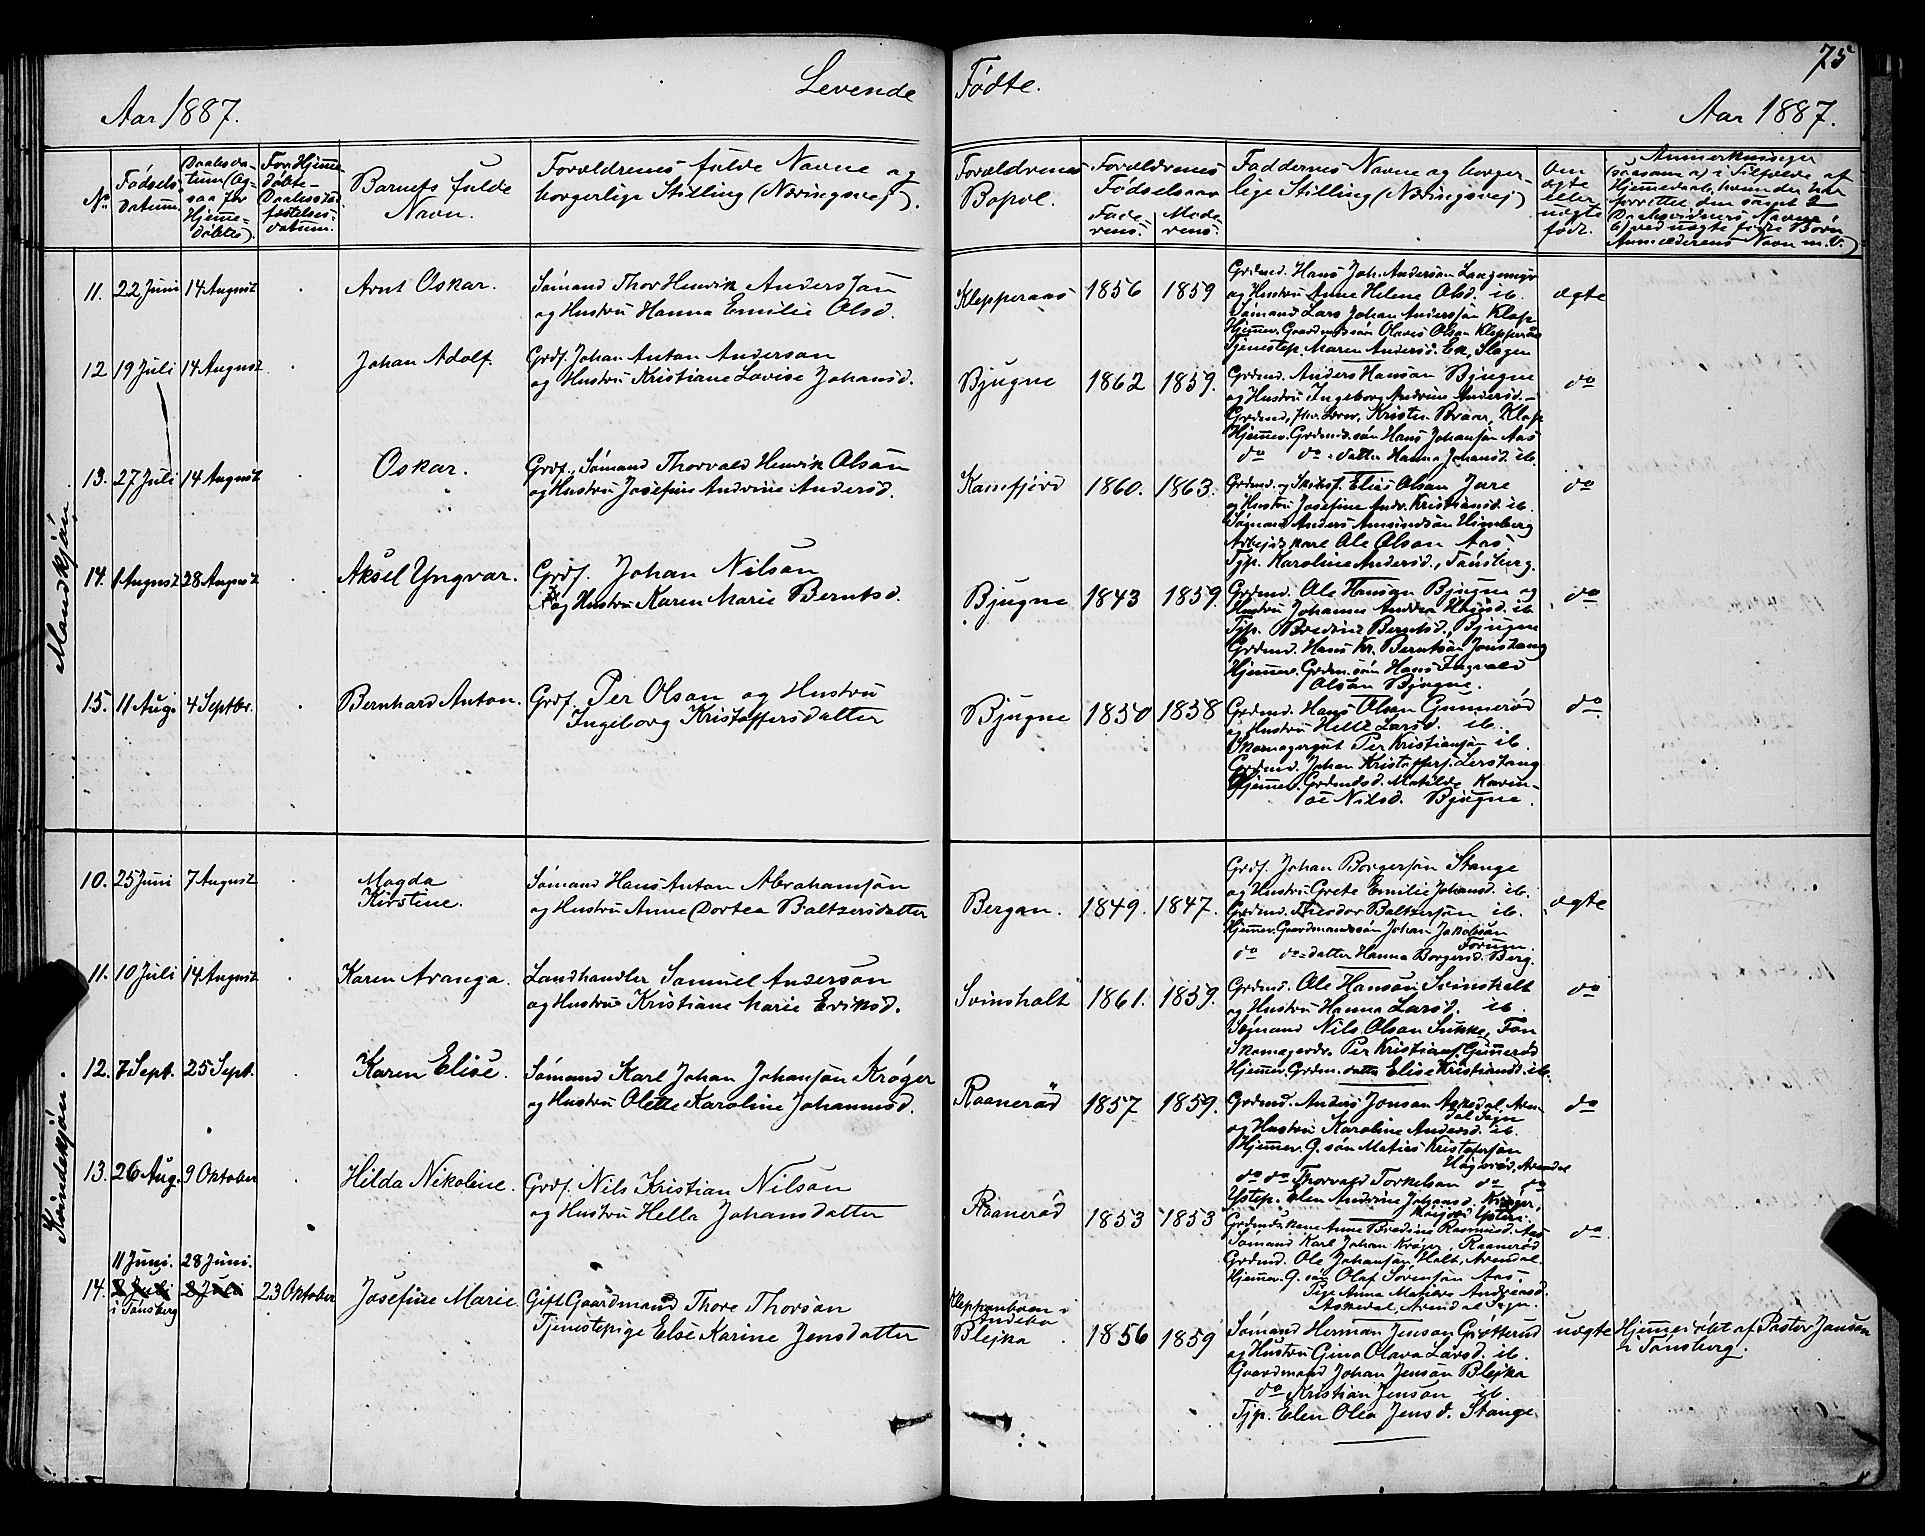 75
Levende Fødte.
Aar 1887. Aar 1887.
No Fødsels datum. Daabsdatum (Ogsaa for Hjemmedøbte). For Hjemmedøbte Daabsstadfæstelsesdatum. Barnets fulde Navn. Forældrenes fulde Navne og borgerlige Stilling (Næringsvej). Forældrenes Bopæl. Forældrenes Fødselsaar Faderens. Moderens. Faddernes Navne og borgerlige Stilling (Næringsvej) Om ægte eller uægte født. Anmerkninger
Mandkjøn
11. 22 Juni 14 August Arnt Oskar. Sømand Thor Henrik Anderssøn
og Hustru Hanna Emilie Olsd.
Klepperaas 1856 1859 ægte
Grdmd. Hans Joh. Anderson Langemyr
og Hustru Anne Helene Olsd. ib.
Sømand Lars Johan Anderssøn Klop
Hjemmev. Gaardmdssøn Olaves Olson Klepperaas
Tjenestep. Maren Andersd. Ek, Slagen
12 19 Juli 14 August Johan Adolf. Grdf. Johan Anton Anderson
og Hustru Kristiane Lovise Johansd.
Bjugne 1862 1859. do
Grdmd. Anders Hanson Bjugne
og Hustru Ingeborg Andrine Andersd.
Grdmd, Lærer, Kristen Braar, Klop
Hjemmev. Grdmd.søn Hans Johansøn Aas
do do datter Hanna Johansd. ib.
13. 27 Juli 14 August Oskar. Grdf., Sømand Thorvald Henrik Olson
og Hustru Josefine Andrine Andersd.
Kamfjord 1860. 1863. do
Grdmd. og Skibsf. Elias Olson Jare
og Hustru Josefine Andr. Kristiansd. ib.
Sømand Anders Amundsøn Himberg
Arbejdskarl Ole Olson Aas
Tjp. Karoline Andersd., Tønsberg.
14. 1 August 28 August Aksel Yngvar. Grdf. Johan Nilson
og Hustru Karen Marie Berntsd.
Bjugne 1843 1859. do
Grdmd. Ole Hanson Bjugne og
Hustru Johanne Andrea Hansd. ib
Tjp. Bredine Berntsd., Bjugne
Grdmd. Hans Kr. Berntsøn Jonstang
Hjemmev. Grdm.søn Hans Ingvald
Olson Bjugne.
15. 11 Aug. 4 Septbr. Bernhard Anton. Grdf. Per Olson og Hustru
Ingeborg Kristoffersdatter
Bjugne 1850 1858 do
Grdmd. Hans Olson Gunnerød
og Hustru Helle Larsd. ib.
Skomagergut Per Kristiansøn ib.
Grdmd. Johan Kristoffersj. Lerstang
Hjemmev. Grdmdsd. Matilde Karin-
e Nilsd. Bjugne.
Kvindekjøn.
10. 25 Juni 7 August Magda
Kirstine. Sømand Hans Anton Abrahamsøn
og Hustru Anne Dortea Baltzersdatter
Bergan. 1849. 1847. ægte
Grdf. Johan Borgersøn Stange
og Hustru Grete Emilie Johansd. ib.
Grdmd. Theodor Baltzersøn ib.
Hjemmev. Gaardmandssøn Johan Jakobson
Forum.
do do datter Hanna Borgersd. Berg.
11. 10 Juli 14 August Karen Aranga. Landhandler Samuel Anderson
og Hustru Kristiane Marie Eriksd.
Svinsholt 1861. 1859. do
Grdmd. Ole Hanson Svinsholt
og Hustru Hanna Larsd. ib.
Sømand Nils Olson Sukke, Fon
Skomagerdr. Per Kristians. Gunnerød
Hjemmev. Grdm. datter Elise Kristiansd. ib.
12. 7 Sept. 25 Sept. Karen Elise. Sømand Karl Johan Johansøn Krøger
og Hustru Olette Karoline Johannesd.
Raanerød 1857 1859. do
Grdmd. Anders Jonson Askedal, Aren-
dal Segn
og Hustru Karoline Andersd. ib.
Hjemmev. G. søn Matias Kristofersøn
Høgsrød, Arendal
do do Thorvald Torkelson do do
13. 26 Aug. 9 Oktober Hilda Nikoline. Grdf. Nils Kristian Nilson
og Hustru Hella Johansdatter
Raanerød 1853 1853 do
Grdmdskone Anne Bredine Rasmusd. Aas
Sømand Karl Johan Krøger, Raanerød
Grdmd. Ole Johansøn Holt, Arendal.
Hjemmev. G. søn Olaf Sørensøn Aas.
Pige Anna Matilde Andersd.
Askedal, Arendal Segn.
14. 11 Juni. 28 Juni.
2 Juli 2 Juli
i Tønsberg
23 Oktober Josefine Marie. Gift Gaardmand Thore Thorson
Tjenestepige Else Karine Jensdatter
Blejka 1856 1859 uægte
Sømand Herman Jenson Grøtterud
og Hustru Gina Olava Larsd. ib.
Gaardmand Johan Jenson Blejka
do Kristian Jenson ib.
Tjp. Elen Olea Jensd. Stange
Hjemmedøbt af Pastor Janson
i Tønsberg.